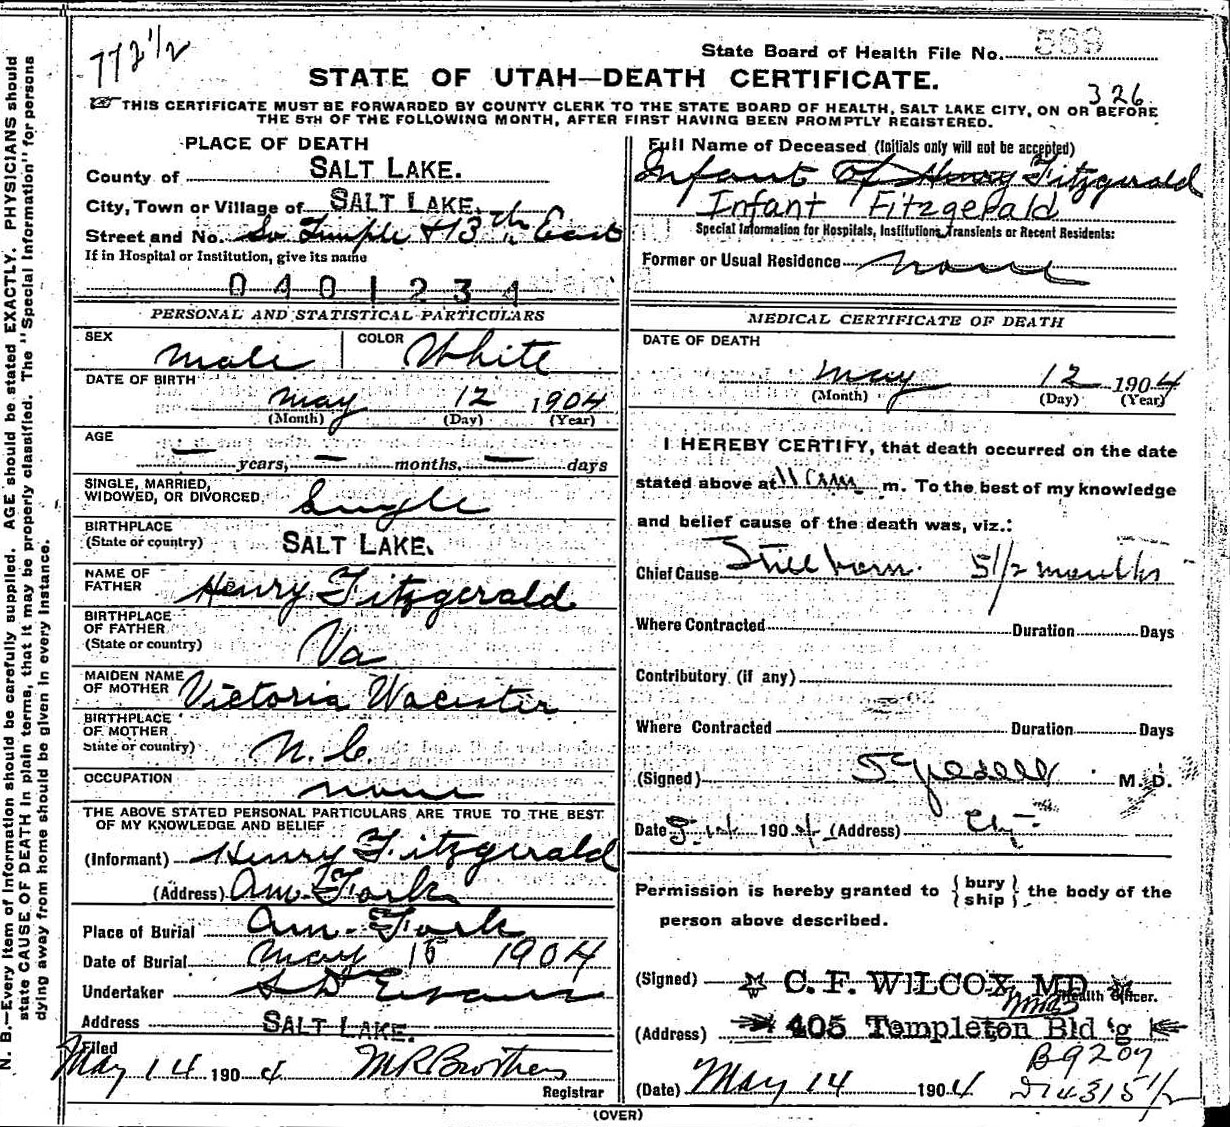 772 1/2
State Board of Health File No. 589
STATE OF UTAH—DEATH CERTIFICATE.
326
THIS CERTIFICATE MUST BE FORWARDED BY COUNTY CLERK TO THE STATE BOARD OF HEALTH, SALT LAKE CITY, ON OR BEFORE
THE 5TH OF THE FOLLOWING MONTH, AFTER FIRST HAVING BEEN PROMPTLY REGISTERED.
PLACE OF DEATH
County of SALT LAKE.
City, Town or Village of SALT LAKE.
Street and No. So Temple & 13th East
If in Hospital or Institution, give its name
0401234
PERSONAL AND STATISTICAL PARTICULARS
SEX Male COLOR White
DATE OF BIRTH
May 12 1904
(Month) (Day) (Year)
AGE
— years, — months, — days
SINGLE, MARRIED,
WIDOWED, OR DIVORCED Single
BIRTHPLACE
(State or country) SALT LAKE.
NAME OF
FATHER Henry Fitzgerald
BIRTHPLACE
OF FATHER
(State or country) Va
MAIDEN NAME
OF MOTHER Victoria
BIRTHPLACE
OF MOTHER
State or country) N.C.
OCCUPATION none
THE ABOVE STATED PERSONAL PARTICULARS ARE TRUE TO THE BEST
OF MY KNOWLEDGE AND BELIEF
(Informant) Henry Fitzgerald
(Address) Am. Fork
Place of Burial Am. Fork
Date of Burial May 15 1904
Undertaker S D Evans
Address SALT LAKE.
Filed
May 14 1904 M R Brothers
Registrar
Full Name of Deceased (Initials only will not be accepted)
Infant Of Henry Fitzgerald
Infant Fitzgerald
Special Information for Hospitals, Institutions, Transients or Recent Residents:
Former or Usual Residence none
MEDICAL CERTIFICATE OF DEATH
DATE OF DEATH
May 12 1904
(Month) (Day) (Year)
I HEREBY CERTIFY, that death occurred on the date
stated above at 11 am m. To the best of my knowledge
and belief cause of the death was, viz.:
Chief Cause Stillborn. 5 1/2 months
Where Contracted Duration Days
Contributory (if any)
Where Contracted Duration Days
(Signed) M. D.
Date 1904 (Address) City
Permission is hereby granted to {bury ship} the body of the
person above described.
(Signed) C. F. WILCOX MD
Health Officer.
(Address) 405 Templeton Bld'g
B9207
(Date) May 14 1904
(OVER)
N. B.—Every item of information should be carefully supplied. AGE should be stated EXACTLY. PHYSICIANS should
state CAUSE OF DEATH in plain terms, that it may be properly classified. The "Special Information" for persons
dying away from home should be given in every instance.